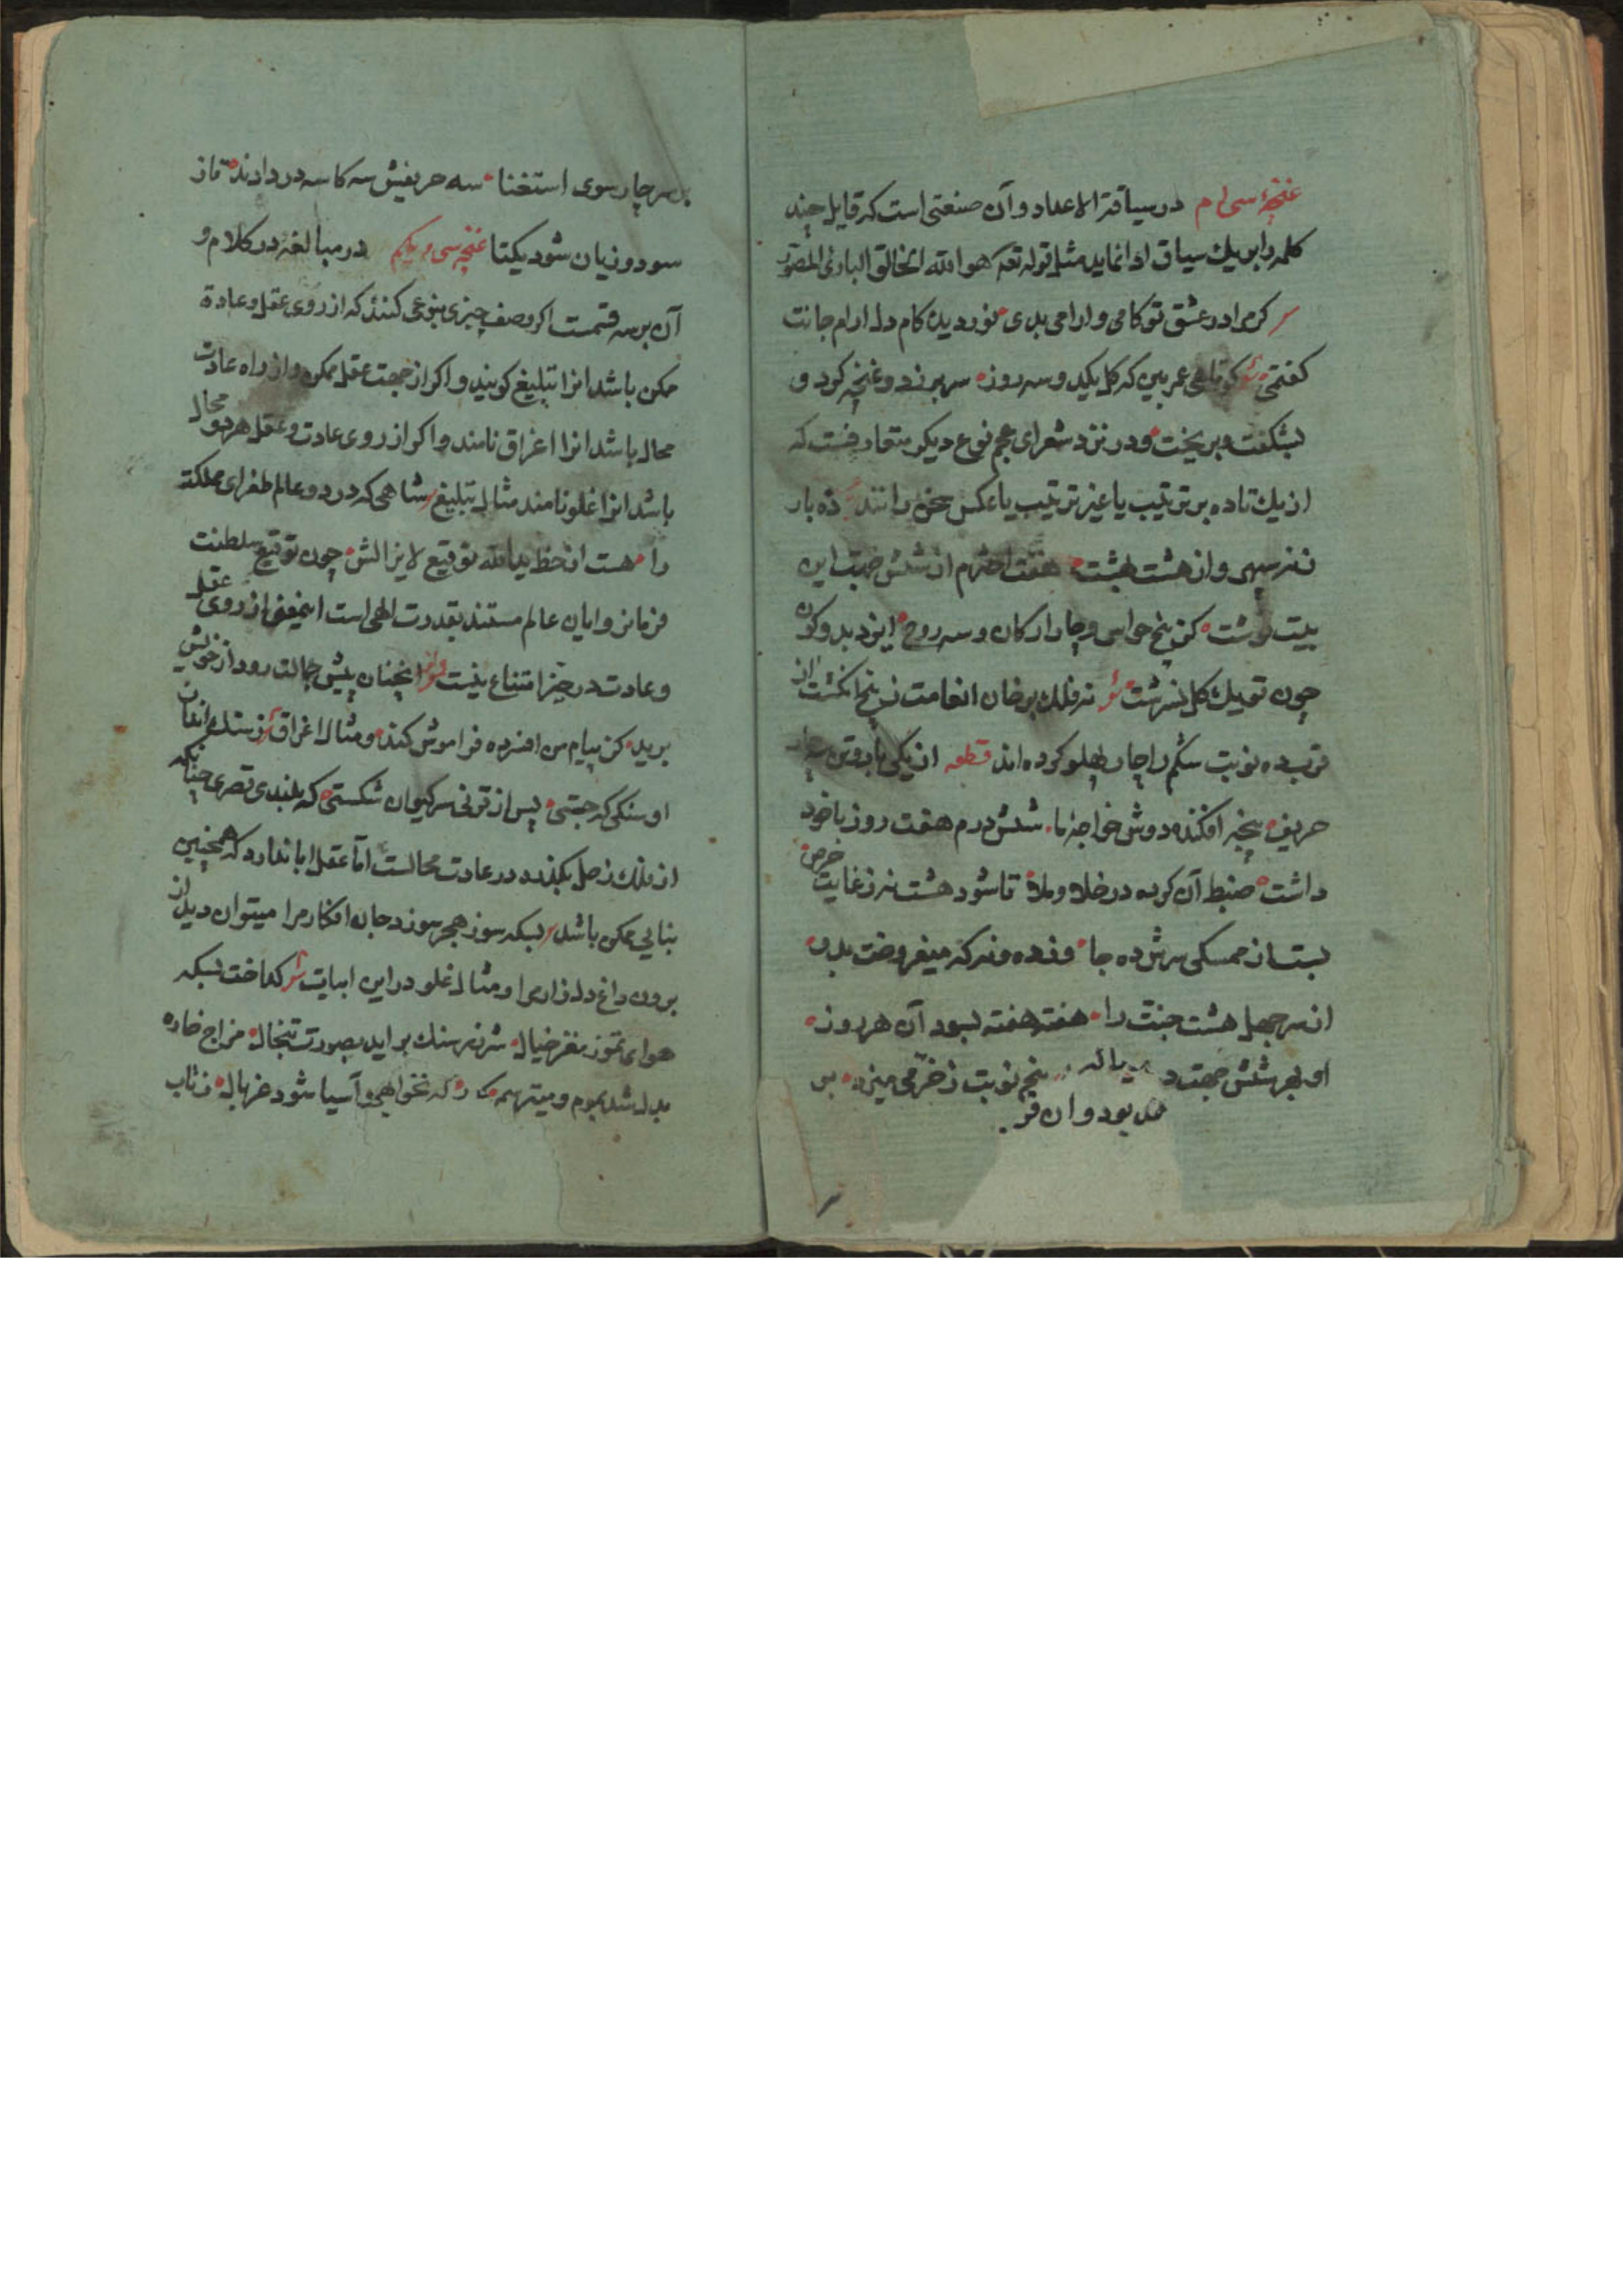 غنچهٔ سی ام در سیاقة الاعداد و آن صنعتی است که قایل چند
کلمه را بر یك سیاق ادا نماید مثل قوله تعه هو الله الخالق البارئ المصور
کر مرا در عشق تو کامی و ارامی بدی نور دیده کام دل ارام جانت
کفتمی کوتاهی عمر بین که کل یکدو سه روزه سر برزد و غنچه کرد و
بشکفت و بریخت و در نزد شعرای عجم نوع دیکر متعارفست که
از یك تا ده بر ترتیب یا غیر ترتیب یا عکس سخن رانند ده بار
ز نه سپهر و از هشت بهشت هفت اخترم از شش جهت این
بیت نوشت کز پنج حواس و چار ارکان و سه روح ایزد بدو کون
چون تو یك کل نسرشت نه فلك بر خان انعامت ز پنج انکشت از
قرب ده نوبت شکم را چار پهلو کرده اند قطعه از یکی تا دو تن سه چار
حریف پنجه افکنده دوش خواجهٔ ما شش درم هفت روز با خود
داشت ضبط آن کرده در خلا و ملا تا شود هشت نه ز غایت حرص
بست از ممسکی سرش ده جا ده و نه که میفروخت بدل
از سر جهل هشت جنت را هفته هفته بسود آن هر روزه
او بهر شش جهت د پنج نوبت ز خرمی میزد بر
بود و ان
بر سر چار سوی استغنا سه حریفش سه کاسه در دادند تا ز
سود و زیان شود یکتا غنچه سی و یکم در مبالغه در کلام و
آن بر سه قسمت اکر وصف چیزی بنوعی کنند که از روی عقل و عادة
ممکن باشد انرا تبلیغ کویند و اکر از جهت عقل ممکن و از راه عادت
محال باشد انرا اغراق نامند و اکر از روی عادت و عقل هر دو محال
باشد انرا غلو نامند مثال تبلیغ شاهی که در دو عالم طغرای مملکة
را هست از خط ید الله توقیع لایزالش چون توقیع سلطنت
فرمانروایان عالم مستند بقدرت الهی است اینمعنی از روی عقل
و عادت در حیز امتناع نیست انچنان پیش جمالت رود از خویش
برید کز پیام من افسرده فراموش کند و مثال اغراق ز سنك
او سنکی که جستی پس از قرنی سر کیوان شکستی که بلندی قصری چنانکه
از فلك زحل بکذرد در عادت محالست اما عقل ابا ندارد که همچنین
بنایی ممکن باشد بسکه سوز هجر سوزد جان افکار مرا میتوان دید از
برون داغ دل زار مرا و مثال غلو در این ابیات کداخت بسکه
هوای تموز مغز خیال شرر ز سنك بر اید بصورت تبخال مزاج خاره
بدل شد بموم و میترسم که نخواهی و آسیا شود غربال ز تاب